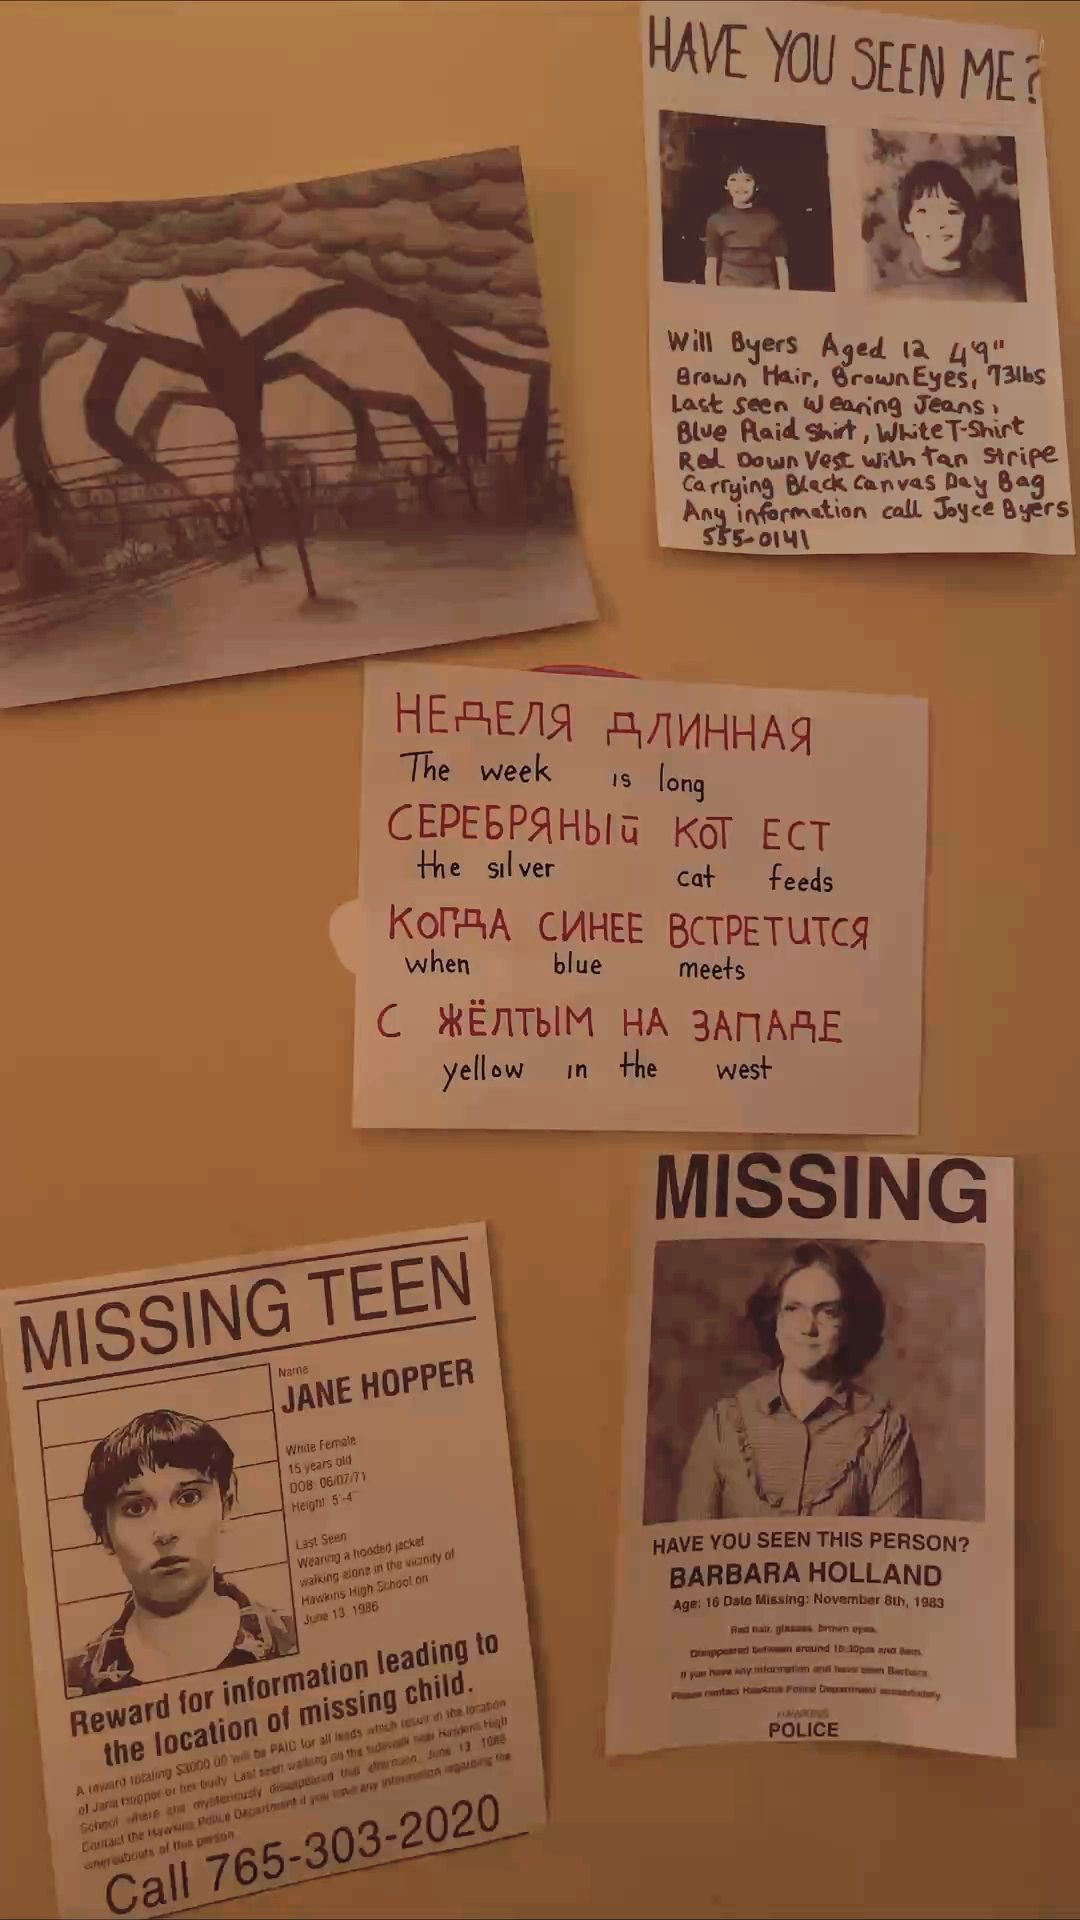 HAVE YOU SEEN ME?
Will Byers Aged 12 4'9"
Brown Hair, Brown Eyes, 73lbs
Last seen Wearing Jeans,
Blue Plaid Shirt, White T-Shirt
Red Down Vest with tan Stripe
Carrying Black Canvas Day Bag
Any information call Joyce Byers
555-0141
НЕДЕЛЯ ДЛИННАЯ
The week is long
СЕРЕБРЯНЫЙ КОТ ЕСТ
the silver cat feeds
КОГДА СИНЕЕ ВСТРЕТИТСЯ
when blue meets
С ЖЁЛТЫМ НА ЗАПАДЕ
yellow in the west
MISSING TEEN
Name
JANE HOPPER
White Female
15 years old
DOB: 06/07/71
Height: 5'-4"
Last Seen
Wearing a hooded jacket
walking alone in the vicinity of
Hawkins High School on
June 13, 1986
Reward for information leading to
the location of missing child.
A reward totaling $3000.00 will be PAID for all leads which result in the location
of Jane Hopper or her body. Last seen walking on the sidewalk near Hawkins High
School where she mysteriously disappeared that afternoon, June 13, 1986.
Contact the Hawkins Police Department if you have any information regarding the
whereabouts of this person.
Call 765-303-2020
MISSING
HAVE YOU SEEN THIS PERSON?
BARBARA HOLLAND
Age: 16 Date Missing: November 8th, 1983
Red hair, glasses, brown eyes.
Disappeared between around 10:30pm and 8am.
If you have any information and have seen Barbara.
Please contact Hawkins Police Department immediately.
HAWKINS
POLICE